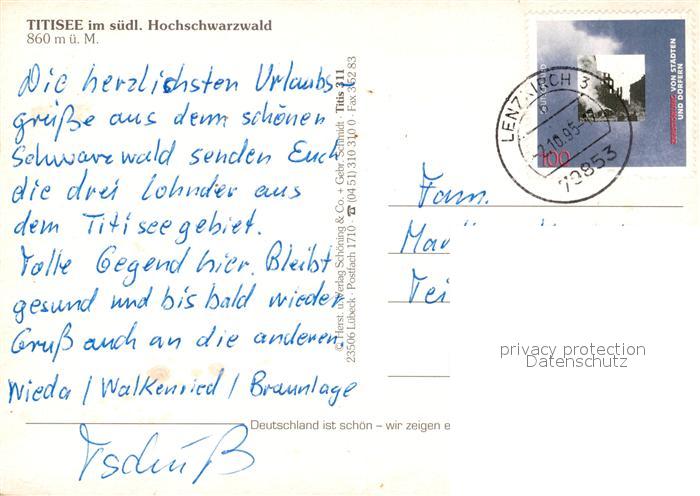 TITISEE im südl. Hochschwarzwald
860 m ü. M.
Die herzlichsten Urlaubs-
grüße aus dem schönen
Schwarzwald senden Euch
die drei Lohnder aus
dem Titiseegebiet.
Tolle Gegend hier. Bleibt
gesund und bis bald wieder
Gruß auch an die anderen.
Wieda / Walkenried / Braunlage
Tschüß
© Herst. u. Verlag Schöning & Co. + Gebr. Schmidt · Titis 311
23506 Lübeck · Postfach 1710 · ☎ (04 51) 310 310 0 · Fax 3 52 83
Deutschland ist schön – wir zeigen e
VON STÄDTEN
UND DÖRFERN
100
LENZKIRCH 3
2.10.95
79853
Fam.
Ma
Tei
privacy protection
Datenschutz